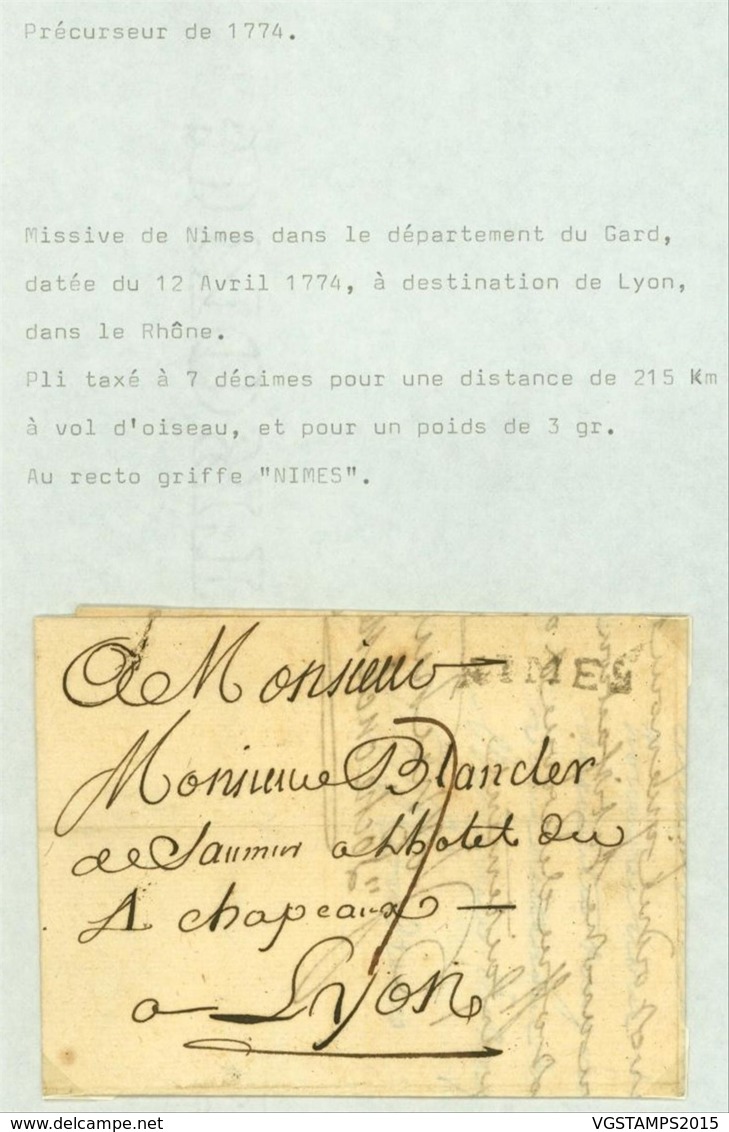 Précurseur de 1774.
Missive de Nimes dans le département du Gard,
datée du 12 Avril 1774, à destination de Lyon,
dans le Rhône.
Pli taxé à 7 décimes pour une distance de 215 Km
à vol d'oiseau, et pour un poids de 3 gr.
Au recto griffe "NIMES".
A Monsieur
NIMES
Monsieur Blancler
7
de Saumur a l'hotel du
4 chapeaux
a Lyon
delcampe.net
VGSTAMPS2015